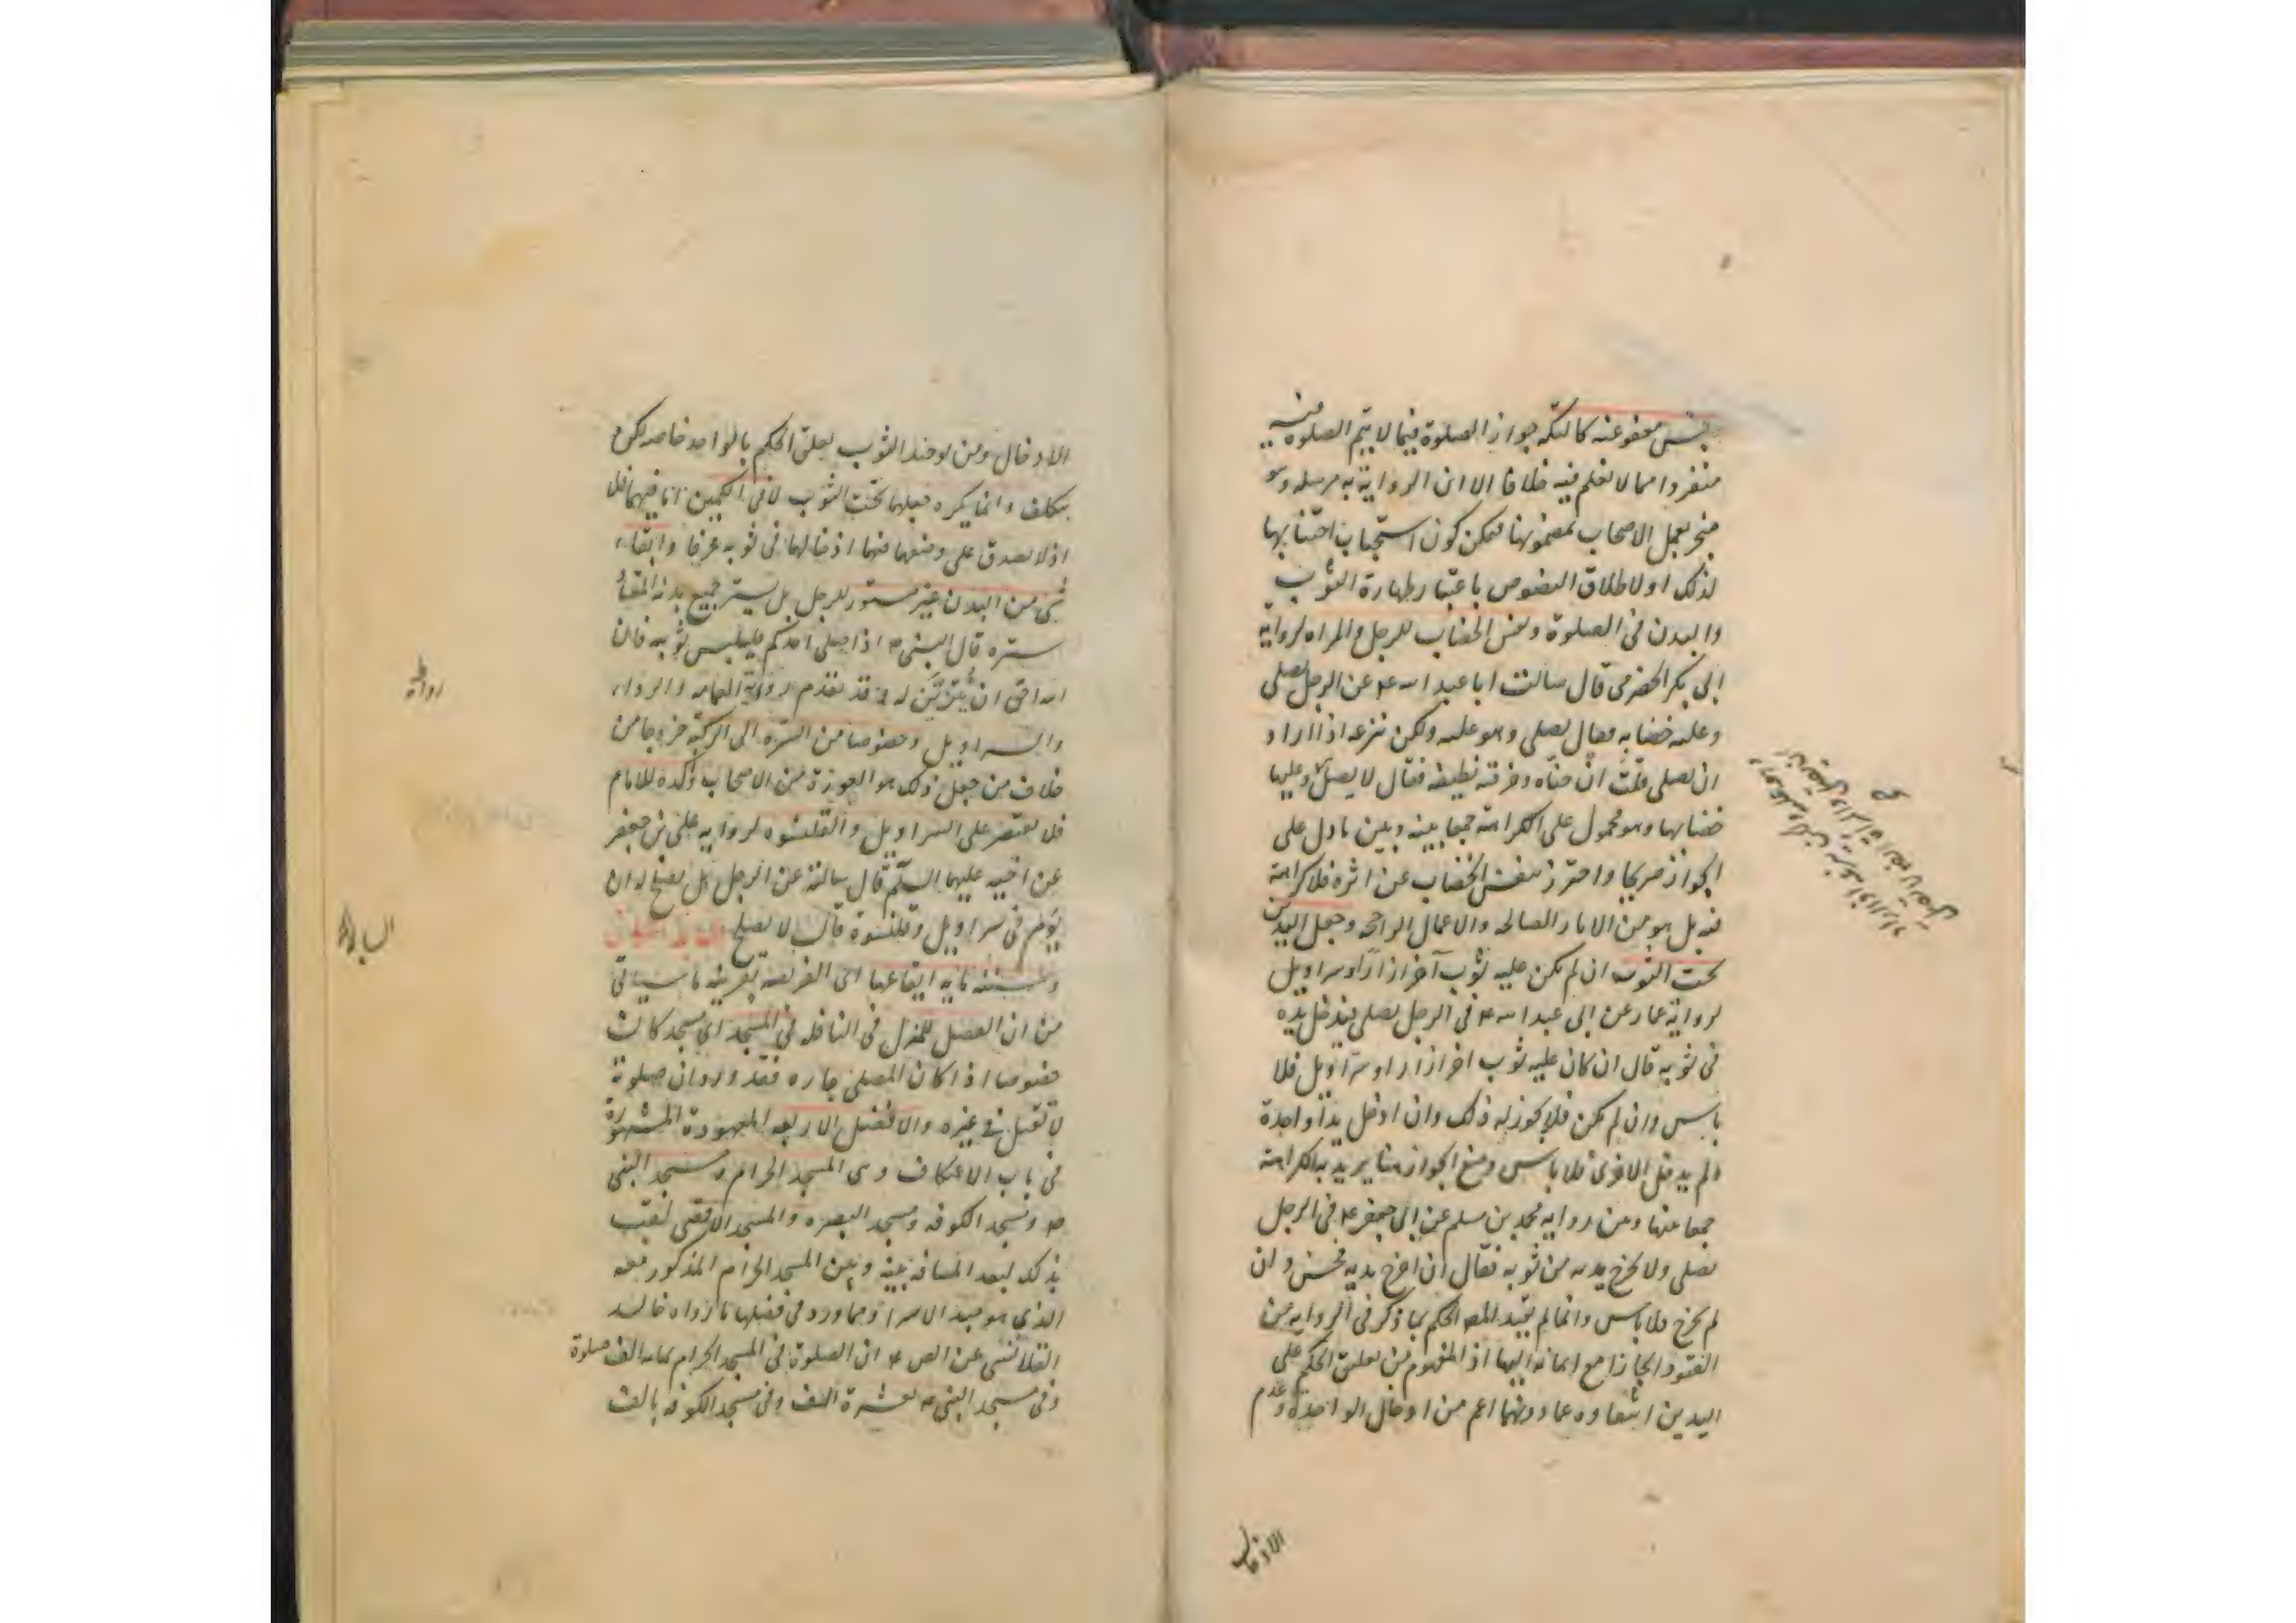 نجس معفو عنه كالتكه جواز الصلوة فيما لا يتم الصلوة فيه
منفردا مما لا نعلم فيه خلافا الا ان الرواية به مرسله وهو
منجبر بعمل الاصحاب بمضمونها فيمكن كون استحباب اجتنابها
لذلك او لاطلاق النصوص باعتبار طهارة الثوب
والبدن فى الصلوة ونفس الخضاب للرجل والمراه لرواية
ابى بكر الحضرمى قال سالت ابا عبد الله ع عن الرجل يصلى
وعليه خضابه فقال لا يصلى وهو عليه ولكن ينزعه اذا اراد
ان يصلى قلت ان حناه وخرقته نظيفه فقال لا يصلى وعليها
خضابها وهو محمول على الكراهة جمعا بينه وبين ما دل على
الجواز صريحا واحترز بنفس الخضاب عن اثره فلا كراهة
فيه بل هو من الاثار الصالحه والاعمال الراجحه وجعل اليدين
تحت الثوب ان لم يكن عليه ثوب آخر ازار او سراويل
لرواية عمار عن ابى عبد الله ع فى الرجل يصلى فيدخل يده
فى ثوبه قال ان كان عليه ثوب اخر ازار او سراويل فلا
باس وان لم يكن فلا يجوز له ذلك وان ادخل يدا واحدة
ولم يدخل الاخرى فلا باس ومنع الجواز هنا يريد به الكراهة
جمعا بينها وبين رواية محمد بن مسلم عن ابى جعفر ع فى الرجل
يصلى ولا يخرج يديه من ثوبه فقال ان اخرج يديه فحسن وان
لم يخرج فلا باس وانما لم يقيد المص الحكم بما ذكر فى الرواية من
القيود
اليدين اعم من ادخال الواحدة وعدم
الادخال
الادخال ومن توحيد الثوب تعلق الحكم بالواحد خاصه لكن
بتكلف وانما يكره جعلهما تحت الثوب لا فى الكمين اما فيهما فلا
اذ لا يصدق على وضعهما فيهما ادخالهما فى ثوبه عرفا وابقاء
شىء من البدن غير مستور للرجل بل يستر جميع بدنه المعتاد
ستره قال النبى ص اذا صلى احدكم فليلبس ثوبيه فان
الله احق ان يتزين له وقد تقدم رواية العمامه والرداء
والسراويل وخصوصا من السرة الى الركبة خروجا من
خلاف من جعل ذلك هو العورة من الاصحاب وآكده للامام
فلا يقتصر على السراويل والقلنسوه لروايه على بن جعفر
عن اخيه عليهما السلم قال سالته عن الرجل هل يصلح له ان
يؤم فى سراويل وقلنسوة قال لا يصلح
ايقاعها اى الفريضه بقرينة ما سياتى
من ان الفضل للمنزل فى النافله فى المسجد اى مسجد كان
خصوصا اذا كان المصلى جاره فقد ورد ان صلوته
لا تقبل فى غيره والافضل الاربعه المعهودة المشهورة
فى باب الاعتكاف وهى المسجد الحرام ومسجد النبى
ص ومسجد الكوفه ومسجد البصره والمسجد الاقصى لقب
بذلك لبعد المسافه بينه وبين المسجد الحرام المذكور معه
الذى هو مبدء الاسراء ومما ورد فى فضلها ما رواه خالد
القلانسى عن الص ع ان الصلوة فى المسجد الحرام بمائه الف صلوة
وفى مسجد النبى ص بعشرة الف وفى مسجد الكوفه بالف